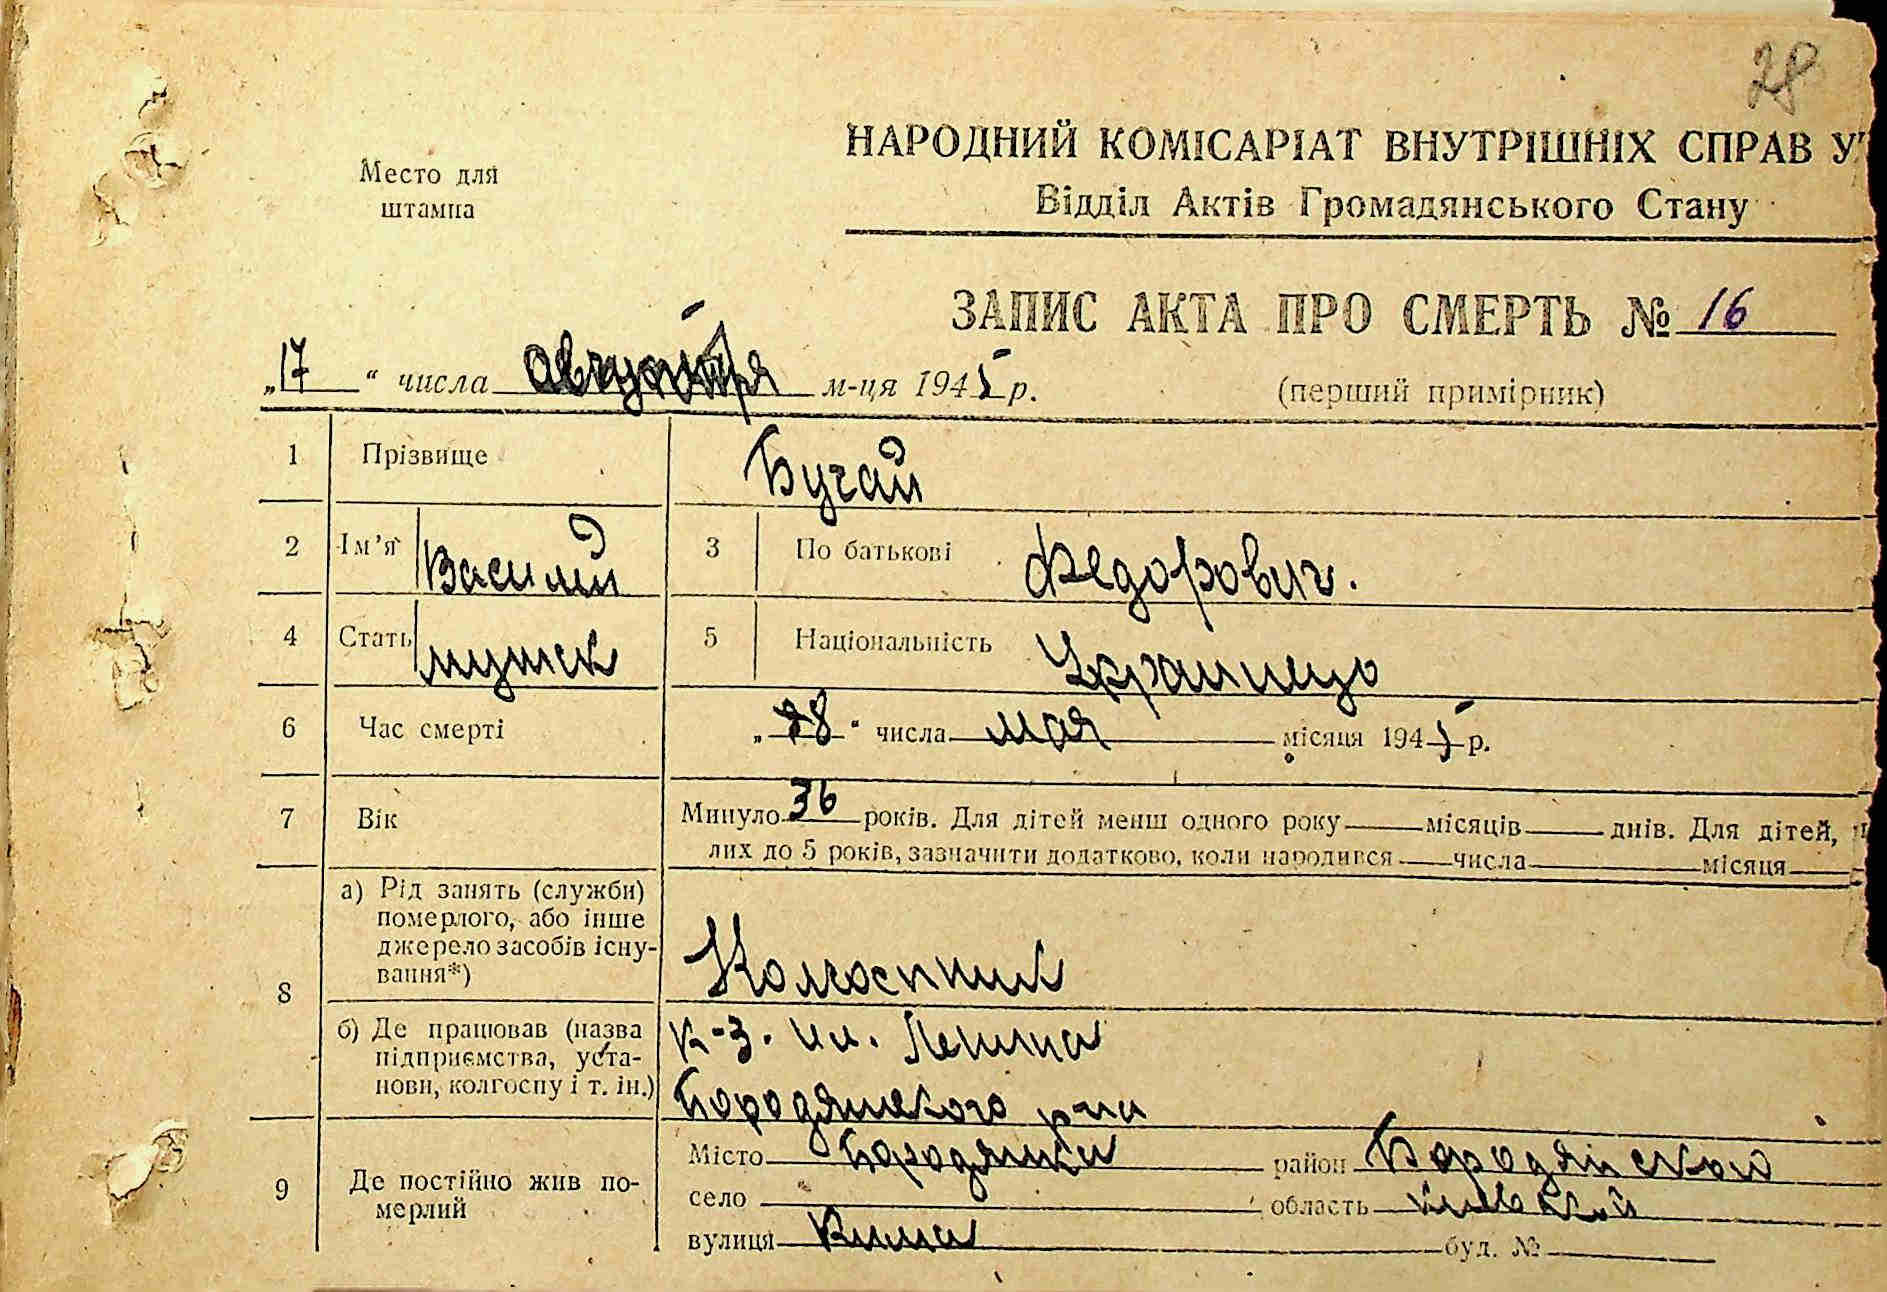 28
НАРОДНИЙ КОМІСАРІАТ ВНУТРІШНІХ СПРАВ У
Место для
штампа
Відділ Актів Громадянського Стану
ЗАПИС АКТА ПРО СМЕРТЬ № 16
„17“ числа м-ця 1945 р.
(перший примірник)
1 Прізвище Бугай
2 Ім’я Василий 3 По батькові Федорович.
4 Стать мужск 5 Національність Украинец
6 Час смерті „28“ числа мая місяця 1945 р.
7 Вік Минуло 36 років. Для дітей менш одного року місяців днів. Для дітей,
лих до 5 років, зазначити додатково, коли народився числа місяця
8 а) Рід занять (служби)
померлого, або інше
джерело засобів існу-
вання*) Колгоспник
б) Де працював (назва
підприємства, уста-
нови, колгоспу і т. ін.) к-з. им. Ленина
Бородянского р-на
9 Де постійно жив по-
мерлий
Місто Бородянка район Бородянский
село область Киевский
вулиця буд. №